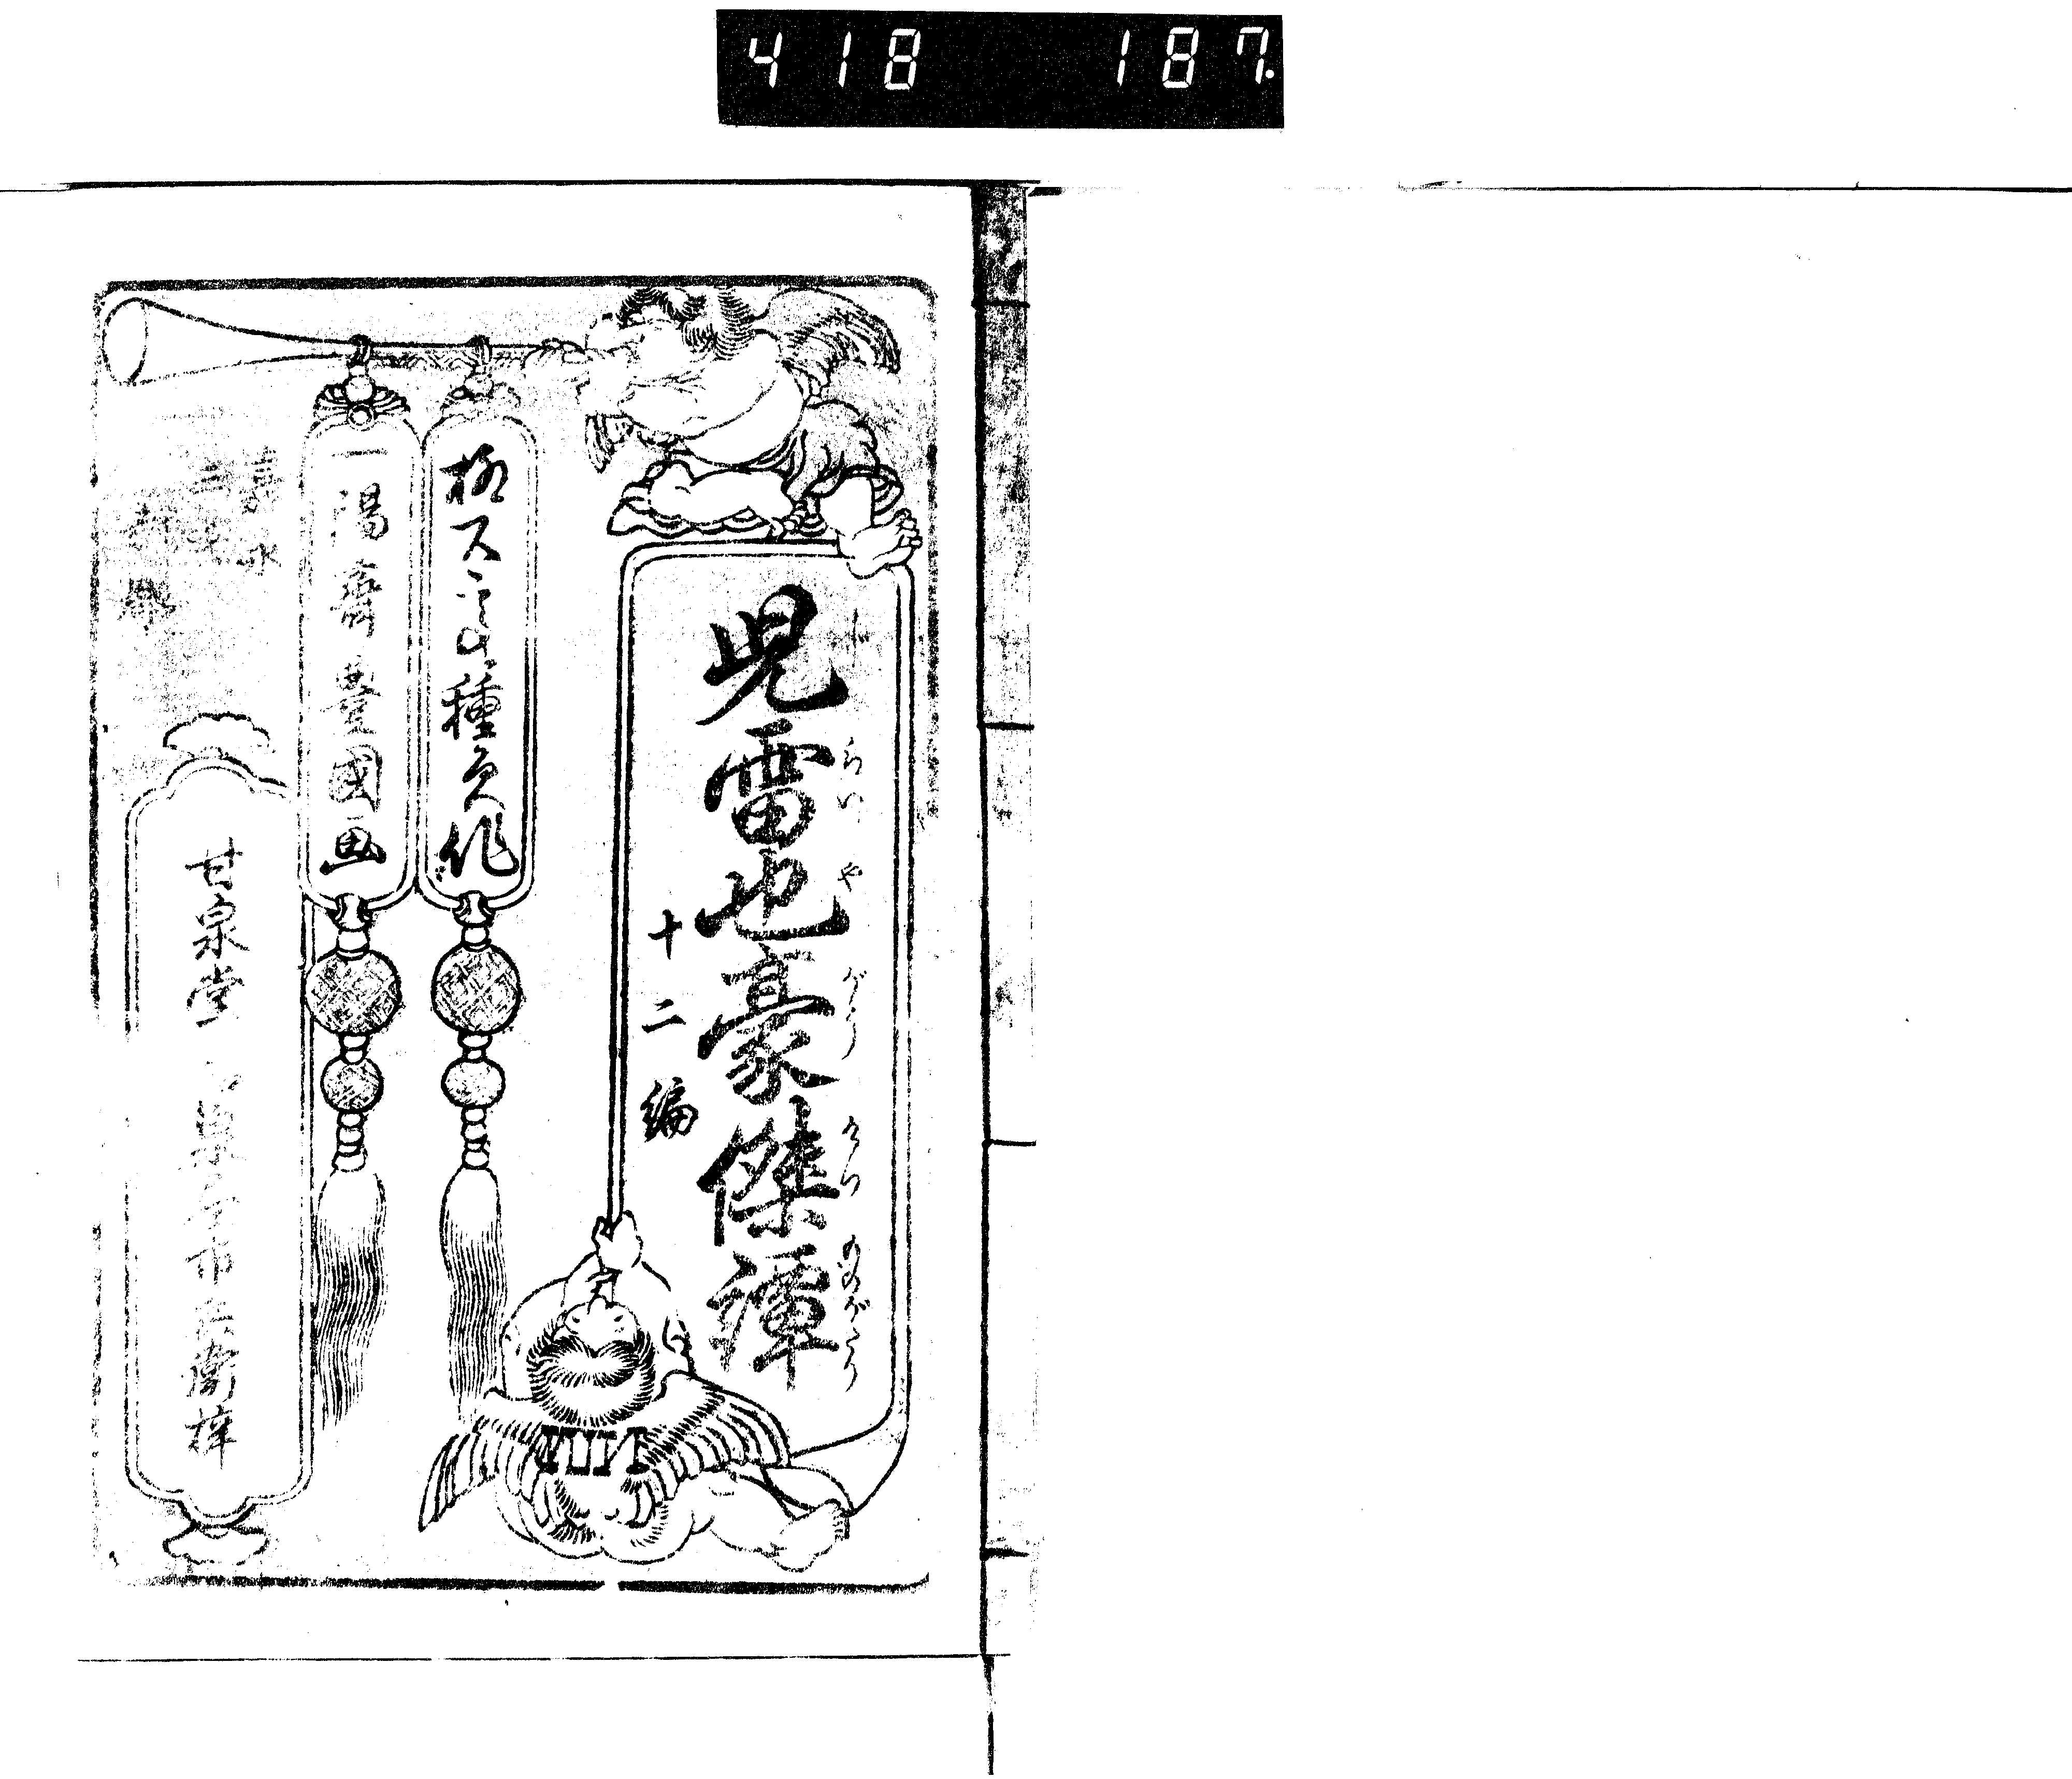 418 187.
児雷也豪傑譚
じ らい や がう けつ ものがたり
十二編
柳下亭種員作
一陽齋豊國画
嘉永
甘泉堂 和泉屋市兵衛梓